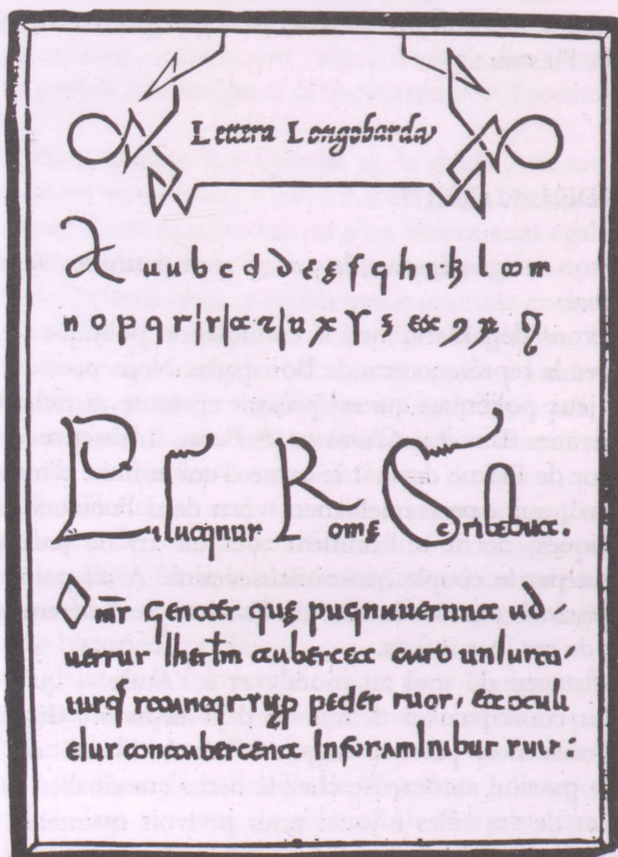 Lettera Longobarda
a a b c d d e ę f g h i k l o m
n o p q r s t u x y z
Palatinus Romę Scribebat
Om̅s Gentes quę pugnauerunt ad
uersum Ihr̅lm tabescet caro uniuscu,
iusqꝫ stantis sup̱ pedes suos, et oculi
eius contabescent in foraminibus suis: